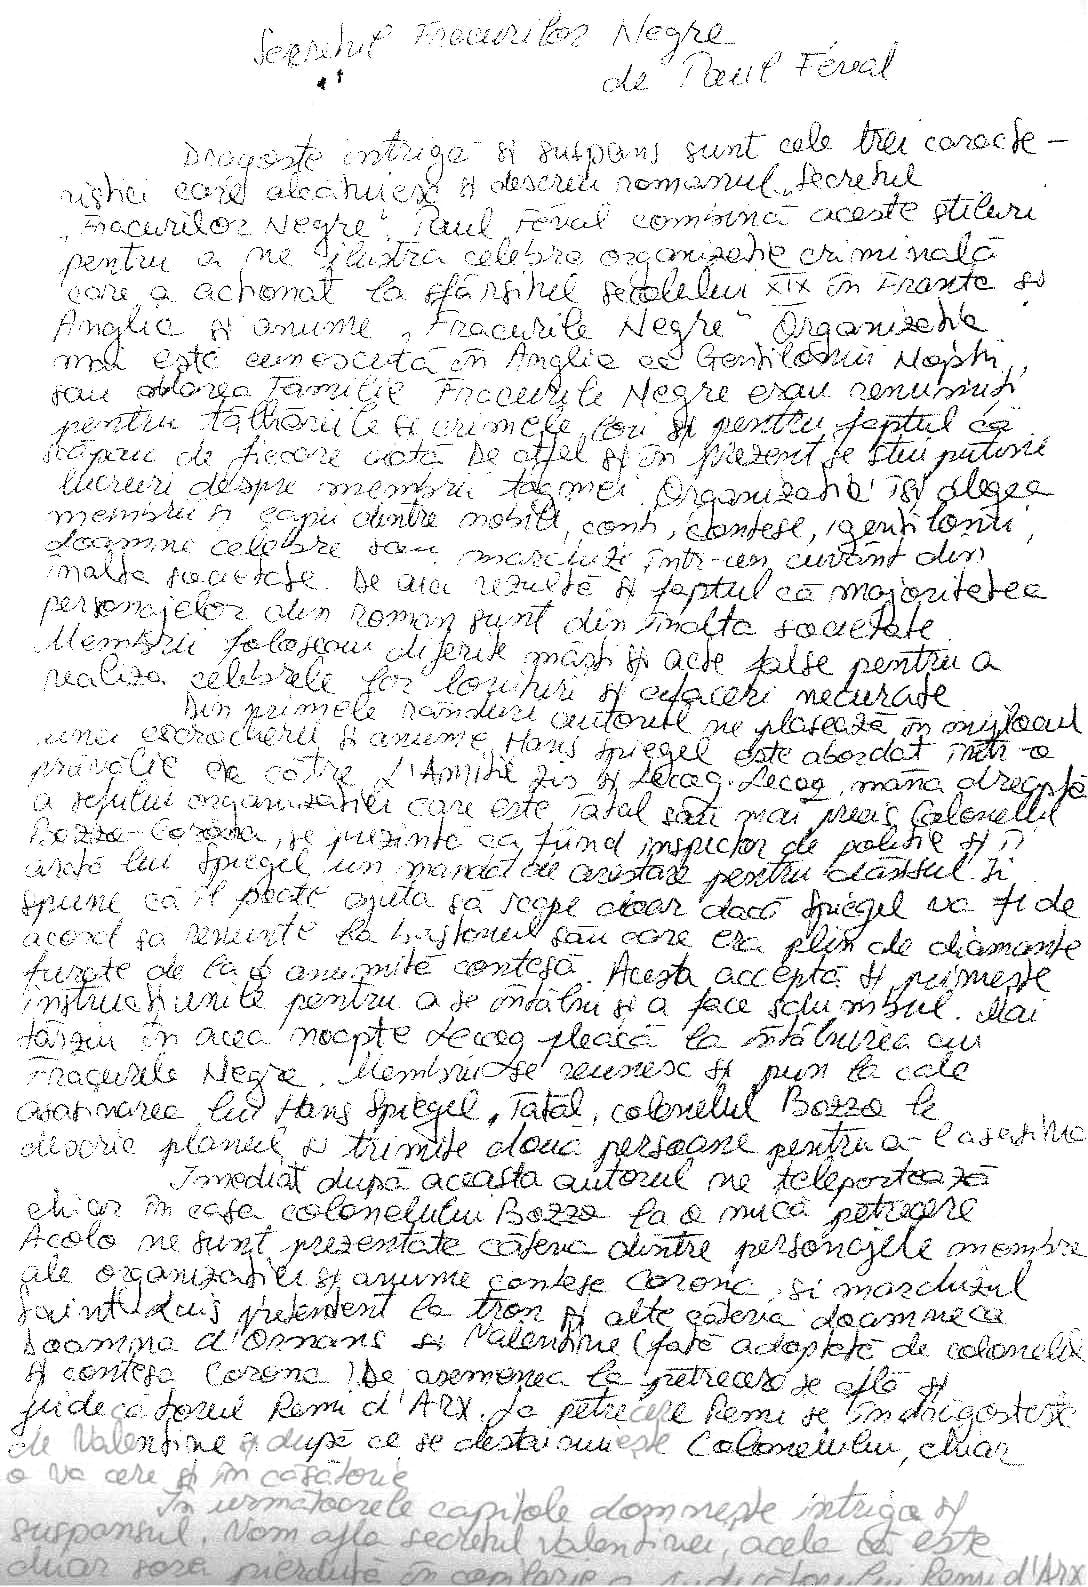 Secretul Fracurilor Negre
de Paul Féval
Dragoste intrigă și suspans sunt cele trei caracte-
ristici care alcătuiesc și descriu romanul „Secretul
„Fracurilor Negre”. Paul Féval combină aceste stiluri
pentru a ne ilustra celebra organizație criminală
care a acționat la sfârșitul secolului XIX în Franța și
Anglia și anume „Fracurile Negre” Organizația
mai este cunoscută în Anglia ca Gentilomii Nopții,
sau Familia Fracurile Negre erau renumiți
pentru tâlhăriile și crimele lor și pentru faptul că
scăpau de fiecare dată De altfel și în prezent se știu puține
lucruri despre membrii tagmei Organizația își alegea
membrii și capii dintre nobili, conți, contese, gentilomi,
doamne celebre sau marchizi într-un cuvânt din
înalta societate. De aici rezultă și faptul că majoritatea
personajelor din roman sunt din înalta societate
Membrii foloseau diferite măști și acte false pentru a
realiza celebrele lor lovituri și afaceri necurate
Din primele rânduri autorul ne plasează în mijlocul
unei escrocherii și anume Hans Spiegel este abordat într-o
prăvălie de către L'Amitié zis și Lecoq. Lecoq, mâna dreaptă
a șefului organizației care este Tatăl sau mai precis Colonelul
Bozzo-Corona, se prezintă ca fiind inspector de poliție și îi
arată lui Spiegel un mandat de arestare pentru dânsul îi
spune că îl poate ajuta să scape doar dacă Spiegel va fi de
acord să renunțe la bastonul său care era plin de diamante
furate de la o anumită contesă. Acesta acceptă și primește
instrucțiunile pentru a se întâlni și a face schimbul. Mai
târziu în acea noapte Lecoq pleacă la întâlnirea cu
Fracurile Negre. Membrii se reunesc și pun la cale
asasinarea lui Hans Spiegel, Tatăl, colonelul Bozzo le
descrie planul și trimite două persoane pentru a-l asasina
Imediat după aceasta autorul ne teleportează
chiar în casa colonelului Bozzo la o mică petrecere
Acolo ne sunt prezentate câteva dintre personajele membre
ale organizației și anume contesa Corona, și marchizul
Saint Luis pretendent la tron și alte câteva doamne ca
Doamna d'Ornans și Valentine (fată adoptată de colonelul
și contesa Corona) De asemenea la petrecere se află și
judecătorul Remi d'ARX. La petrecere Remi se îndrăgostește
de Valentine și după ce se destăinuiește Colonelului, chiar
o va cere și în căsătorie
În următoarele capitole domnește intriga și
suspansul. Vom afla secretul Valentinei, acela că este
chiar sora pierdută în copilărie a judecătorului Remi d'ARX